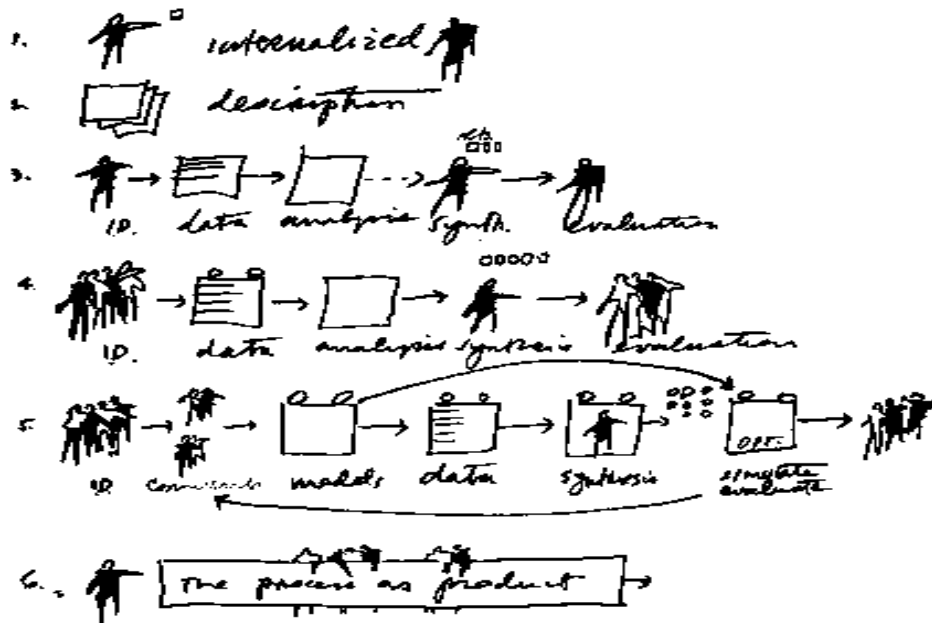 1. internalized
2. description
3.
ID. data analysis synth. evaluation
4.
ID. data analysis synthesis evaluation
5.
OPT.
ID models data synthesis simulate
evaluate
6. The process as product